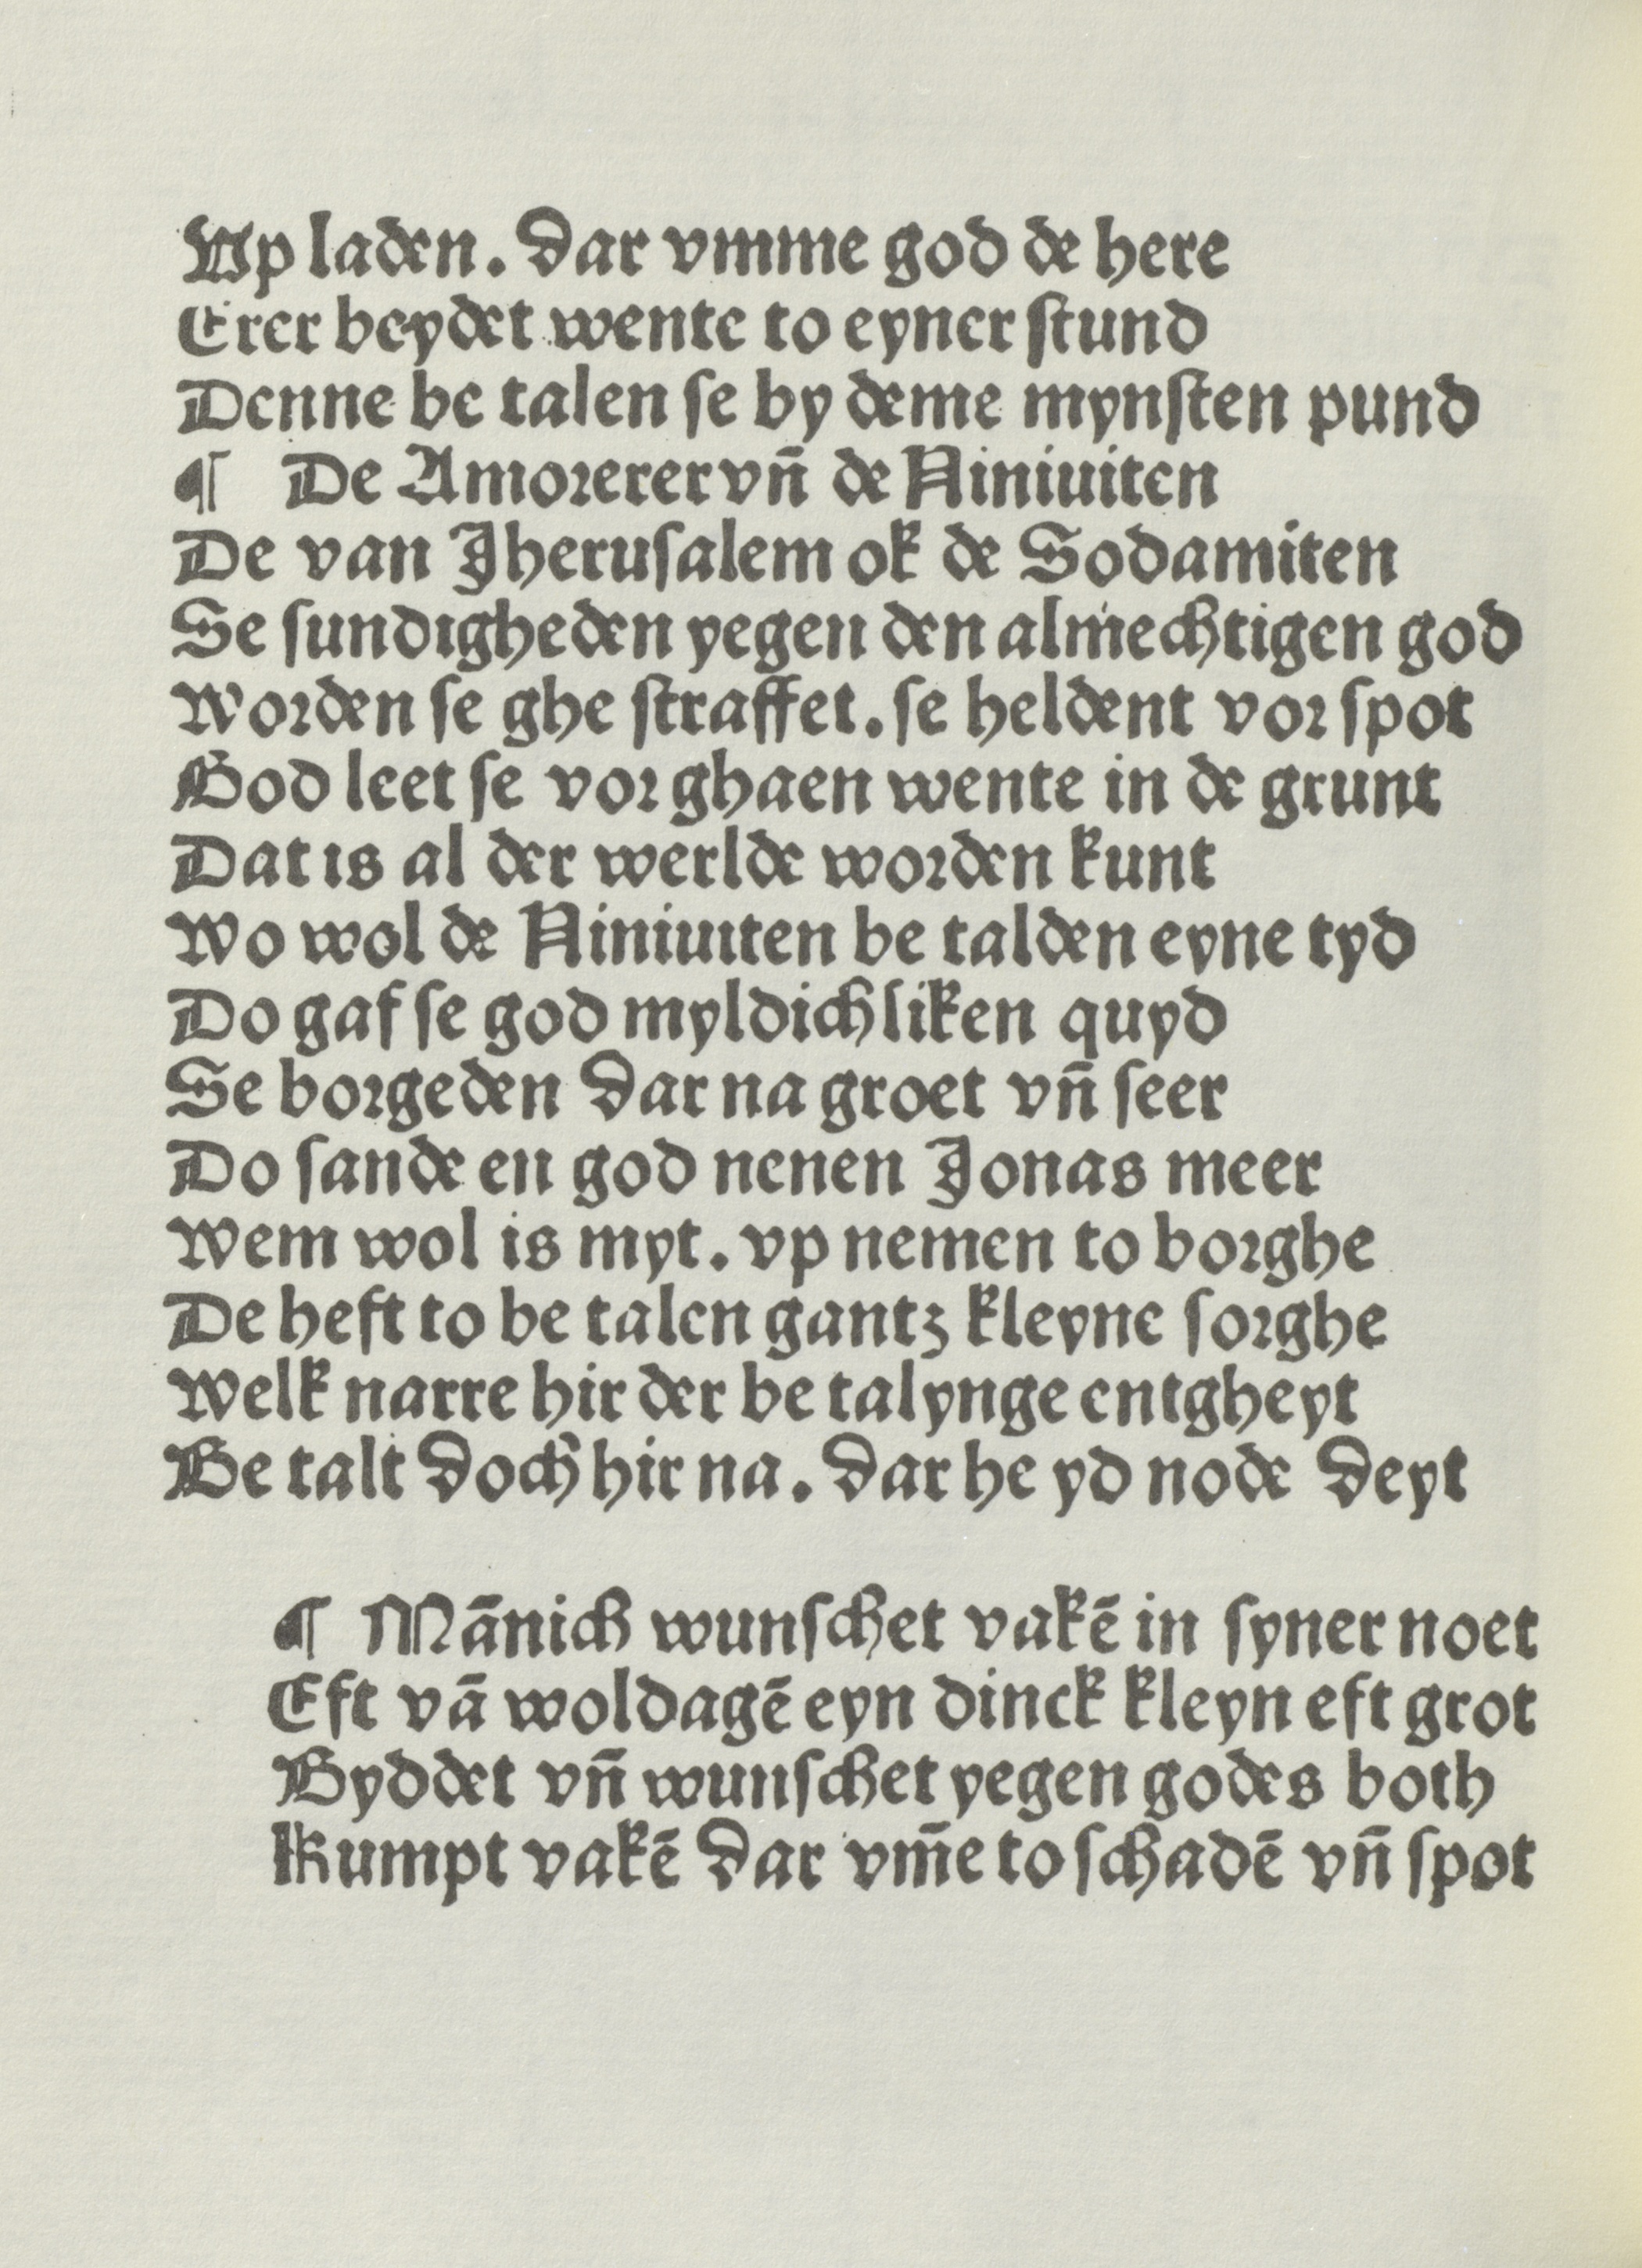 Vp laden. Dar vmme god de here
Erer beydet wente to eyner ſtund
Denne be talen ſe by deme mynſten pund
¶ De Amorerer vn̄ de Niniuiten
De van Jheruſalem ok de Sodamiten
Se ſundigheden yegen den almechtigen god
Worden ſe ghe ſtraffet. ſe heldent vor ſpot
God leet ſe vor ghaen wente in de grunt
Dat is al der werlde worden kunt
Wo wol de Niniuiten be talden eyne tyd
Do gaf ſe god myldichliken quyd
Se borgeden dar na groet vn̄ ſeer
Do ſande en god nenen Jonas meer
Wem wol is myt. vp nemen to borghe
De heft to be talen gantz kleyne ſorghe
Welk narre hir der be talynge entgheyt
Be talt doch hir na. dar he yd node deyt
¶ Mānich wunſchet vakē in ſyner noet
Eft vā woldagē eyn dinck kleyn eft grot
Byddet vn̄ wunſchet yegen godes both
Kumpt vakē dar vm̄e to ſchadē vn̄ ſpot